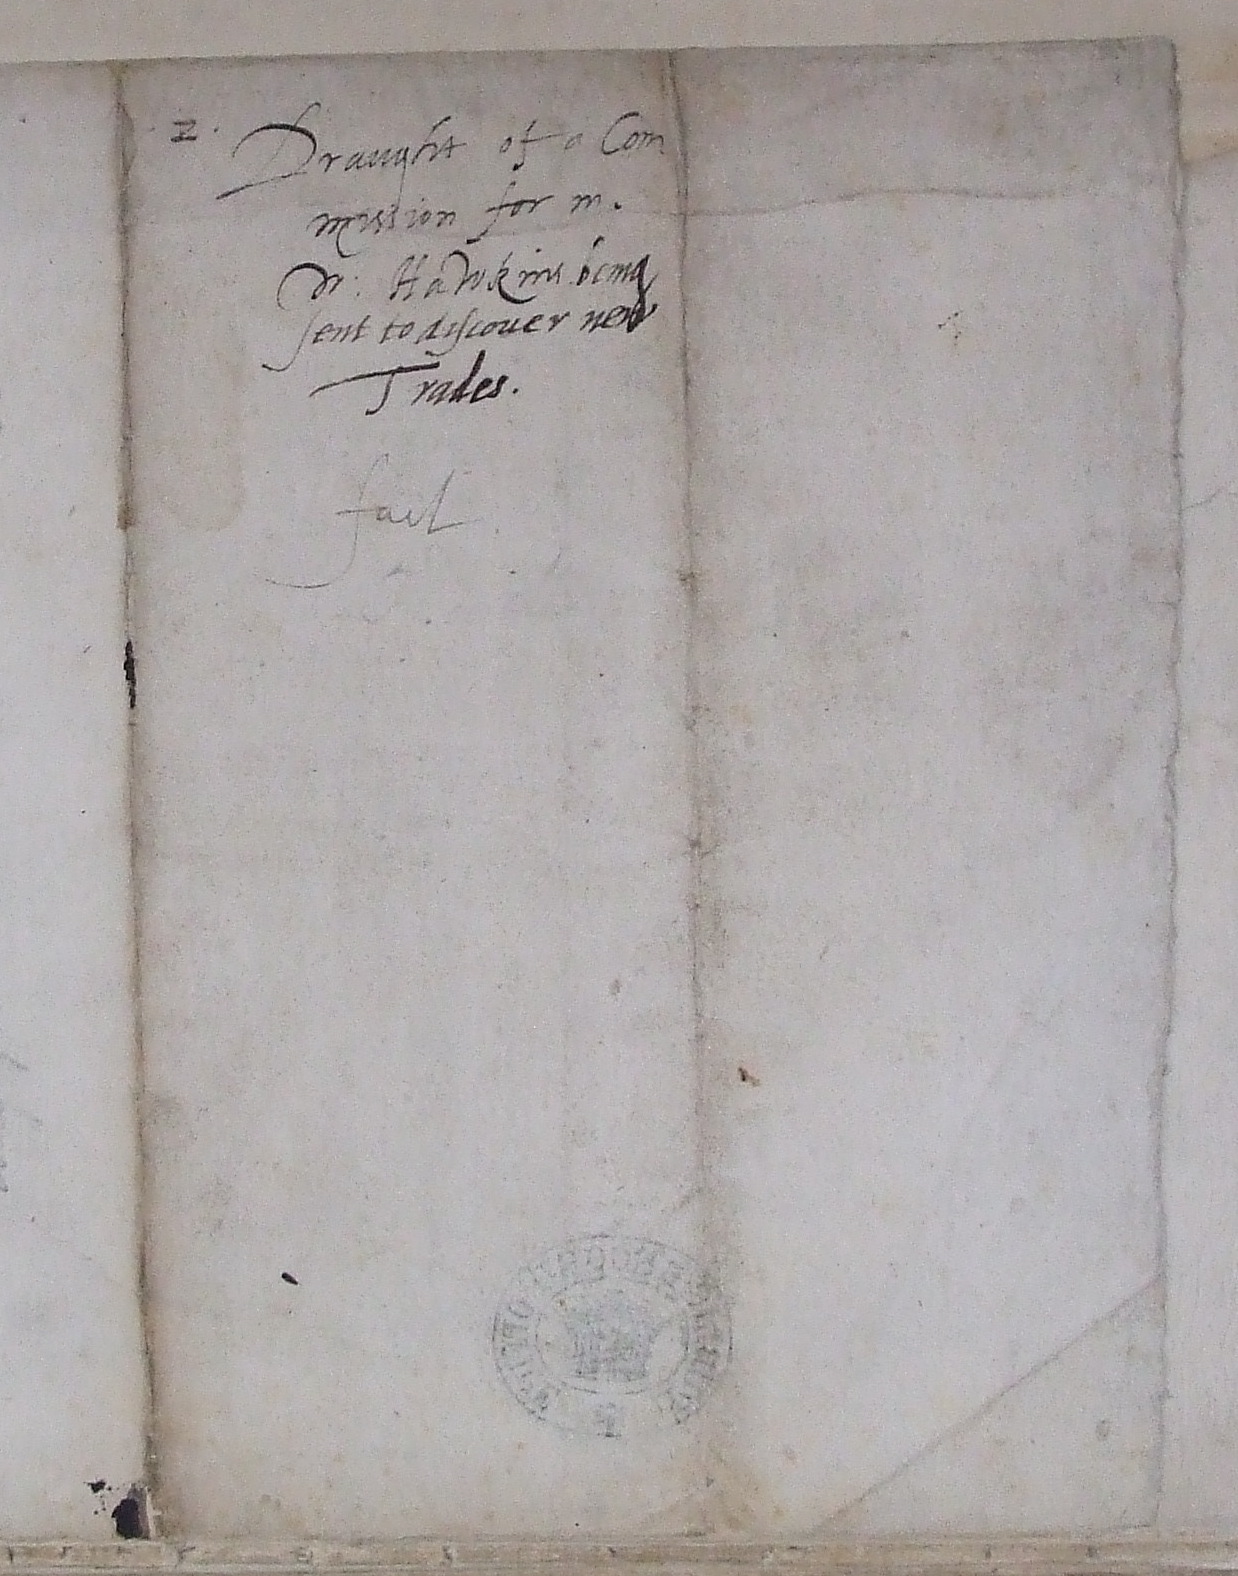 2.
Draught of a Com
mission for m.
W: Hawkins being
sent to discouer new
Trades.